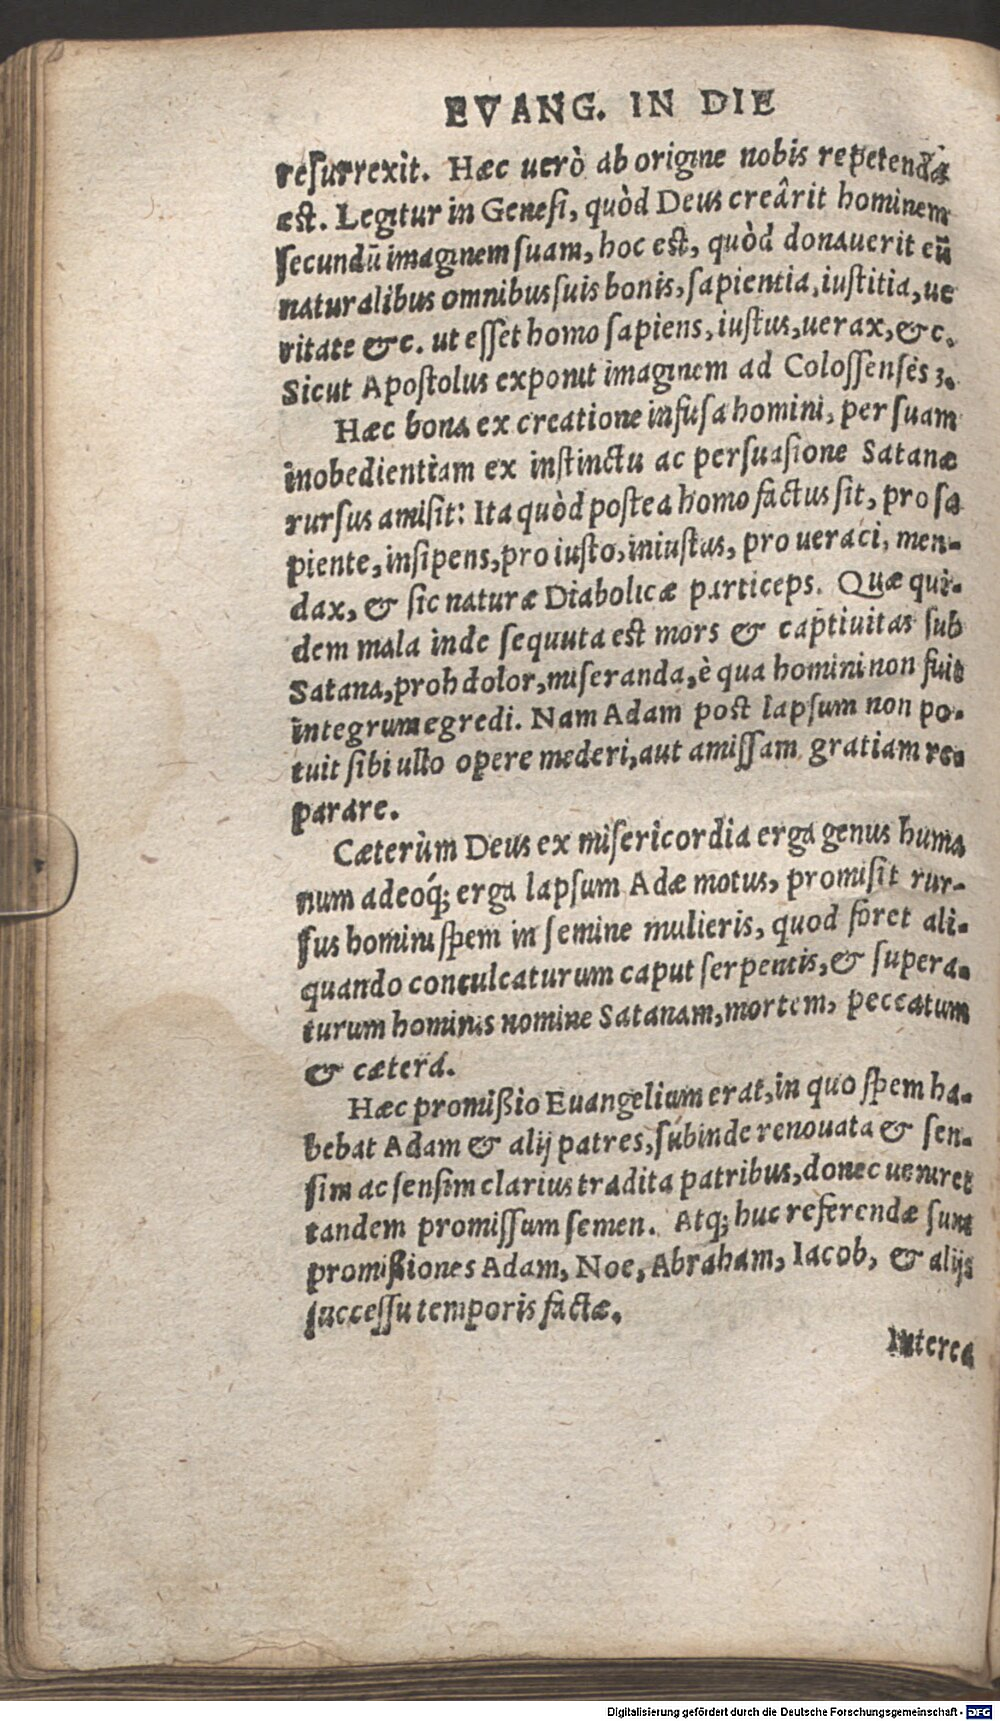 EVANG. IN DIE
resurrexit. Hæc uerò ab origine nobis repetenda
æst. Legitur in Genesi, quòd Deus creârit hominem
secundū imaginem suam, hoc est, quòd donauerit eū
naturalibus omnibus suis bonis, sapientia, iustitia, ue
ritate &c. ut esset homo sapiens, iustus, uerax, &c.
Sicut Apostolus exponit imaginem ad Colossenses 3.
Hæc bona ex creatione infusa homini, per suam
inobedientiam ex instinctu ac persuasione Satanæ
rursus amisit: Ita quòd postea homo factus sit, pro sa
piente, insipens, pro iusto, iniustus, pro ueraci, men-
dax, & sic naturæ Diabolicæ particeps. Quæ qui-
dem mala inde sequuta est mors & captiuitas sub
Satana, proh dolor, miseranda, è qua homini non fuit
integrum egredi. Nam Adam post lapsum non po-
tuit sibi ullo opere mederi, aut amissam gratiam re-
parare.
Cæterùm Deus ex misericordia erga genus huma
num adeoq́; erga lapsum Adæ motus, promisit rur-
sus homini spem in semine mulieris, quod foret ali-
quando conculcaturum caput serpentis, & supera-
turum hominis nomine Satanam, mortem, peccatum
& cætera.
Hæc promißio Euangelium erat, in quo spem ha-
bebat Adam & alij patres, subinde renouata & sen-
sim ac sensim clarius tradita patribus, donec ueniret
tandem promissum semen. Atq; huc referendæ sunt
promißiones Adam, Noe, Abraham, Iacob, & alijs
successu temporis factæ.
Interea
Digitalisierung gefördert durch die Deutsche Forschungsgemeinschaft - DFG